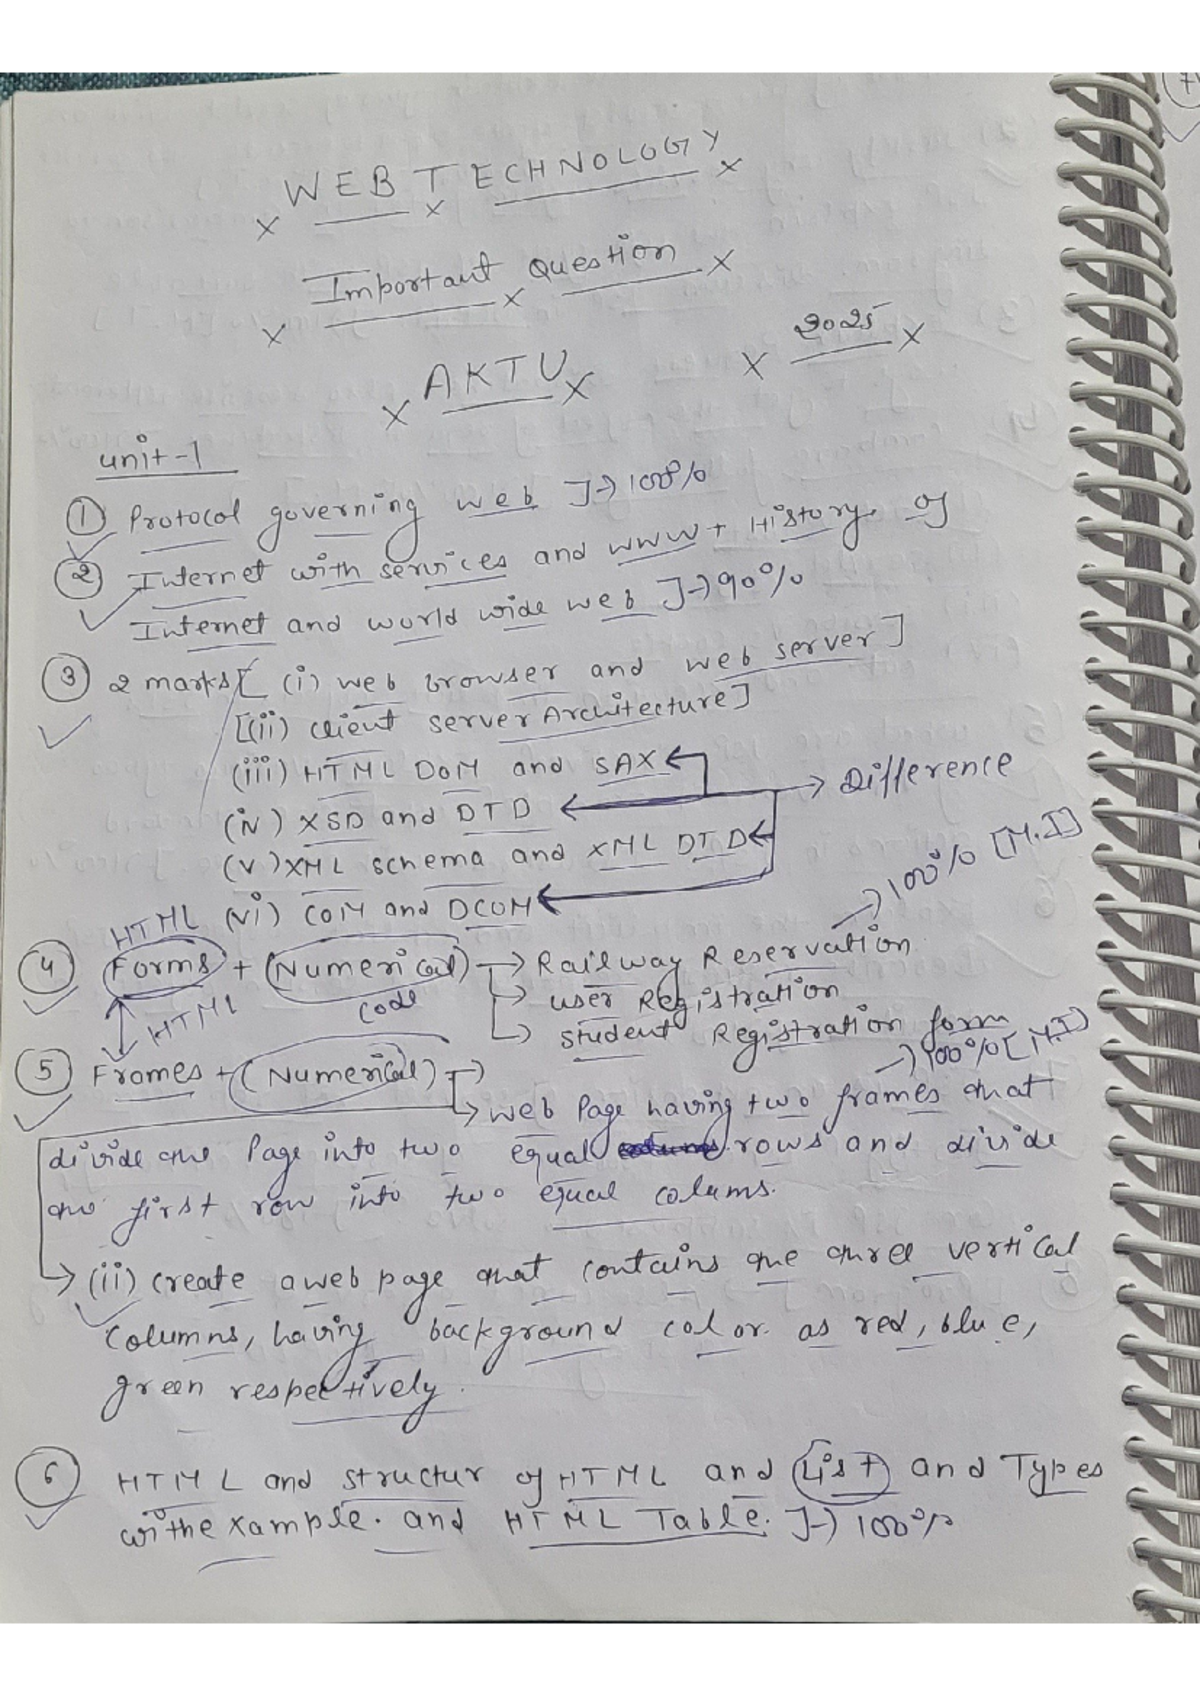 WEB TECHNOLOGY
Important Question
AKTU 2025
unit-1
① Protocol governing web ]→100%
② Internet with services and WWW + History of
Internet and world wide web ]→90%
③ 2 marks [ (i) web browser and web server]
[(ii) client server Architecture]
(iii) HTML DOM and SAX
→ Difference
(iv) XSD and DTD
(v) XML schema and XML DTD
(vi) COM and DCOM
→100% [M.I]
④ HTML Forms + (Numerical) → Railway Reservation
code → user Registration
→ student Registration form
HTML
→100% [M.I]
⑤ Frames + (Numerical) →
→ web Page having two frames that
divide the Page into two equal rows and divide
the first row into two equal colums.
→ (ii) create a web page that contains the three vertical
columns, having background color as red, blue,
green respectively.
⑥ HTML and structur of HTML and List and Types
with example. and HTML Table. ]→ 100%
7